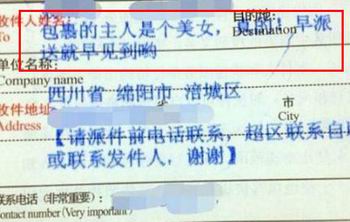 收件人姓名: 目的地:
To Destination
包裹的主人是个美女,真的!早派
送就早见到哟
单位名称:
Company name
四川省 绵阳市 涪城区
收件地址 市
Address City
【请派件前电话联系,超区联系自
或联系发件人,谢谢】
联系电话(非常重要):
Contact number (Very important)